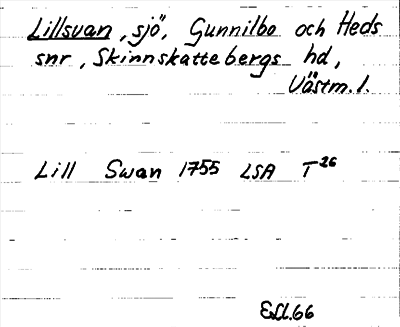 Lillsvan, sjö, Gunnilbo och Heds
snr, Skinnskattebergs hd,
Västm. l.
Lill Swan 1755 LSA T26